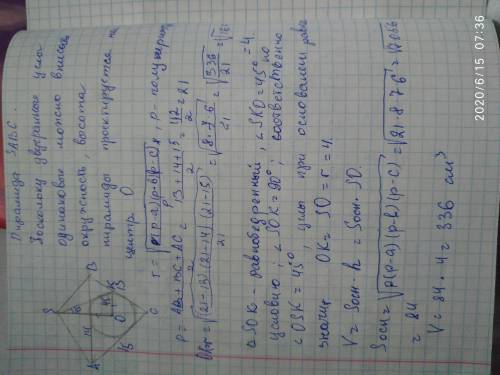 Пирамида SABC.
Поскольку двугранные углы
одинаковы можно вписать
окружность, высота
пирамиды проектируется на
центр O
r = √((p-a)(p-b)(p-c)/p), p - полупериметр
p = (AB+BC+AC)/2 = (13+14+15)/2 = 42/2 = 21
OK=r = √((21-13)(21-14)(21-15)/21) = √(8·7·6/21) = √(336/21) = √16
= 4.
△SOK - равнобедренный, ∠SKO = 45° по
условию; ∠SOK = 90°; соответственно
∠OSK = 45°, углы при основании равны
значит OK = SO = r = 4.
V = Sосн · h = Sосн · SO.
Sосн = √(p(p-a)(p-b)(p-c)) = √(21·8·7·6) = √7056
= 84
V = 84 · 4 = 336 см³
S
A
B
C
O
K
14
15
2020/6/15 07:36